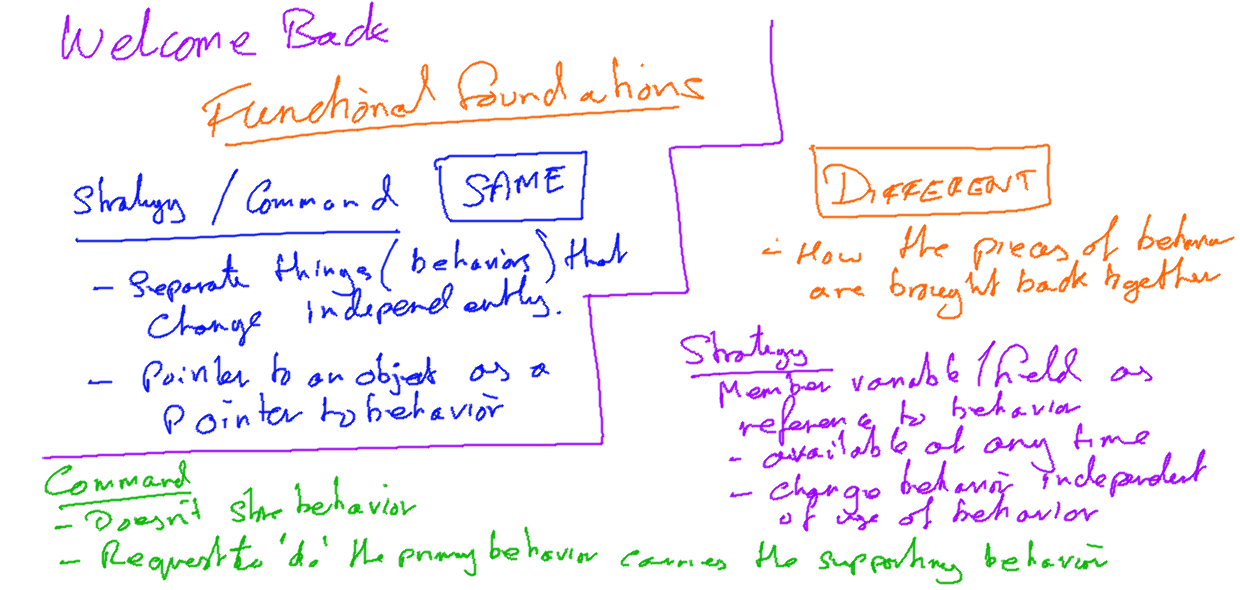 Welcome Back
Functional Foundations
Strategy / Command
SAME
- Separate things (behaviors) that
change independently.
- Pointer to an object as a
Pointer to behavior
DIFFERENT
- How the pieces of behavior
are brought back together
Strategy
Member variable/field as
reference to behavior
- available at any time
- change behavior independent
of use of behavior
Command
- Doesn't store behavior
- Request to 'do' the primary behavior carries the supporting behavior